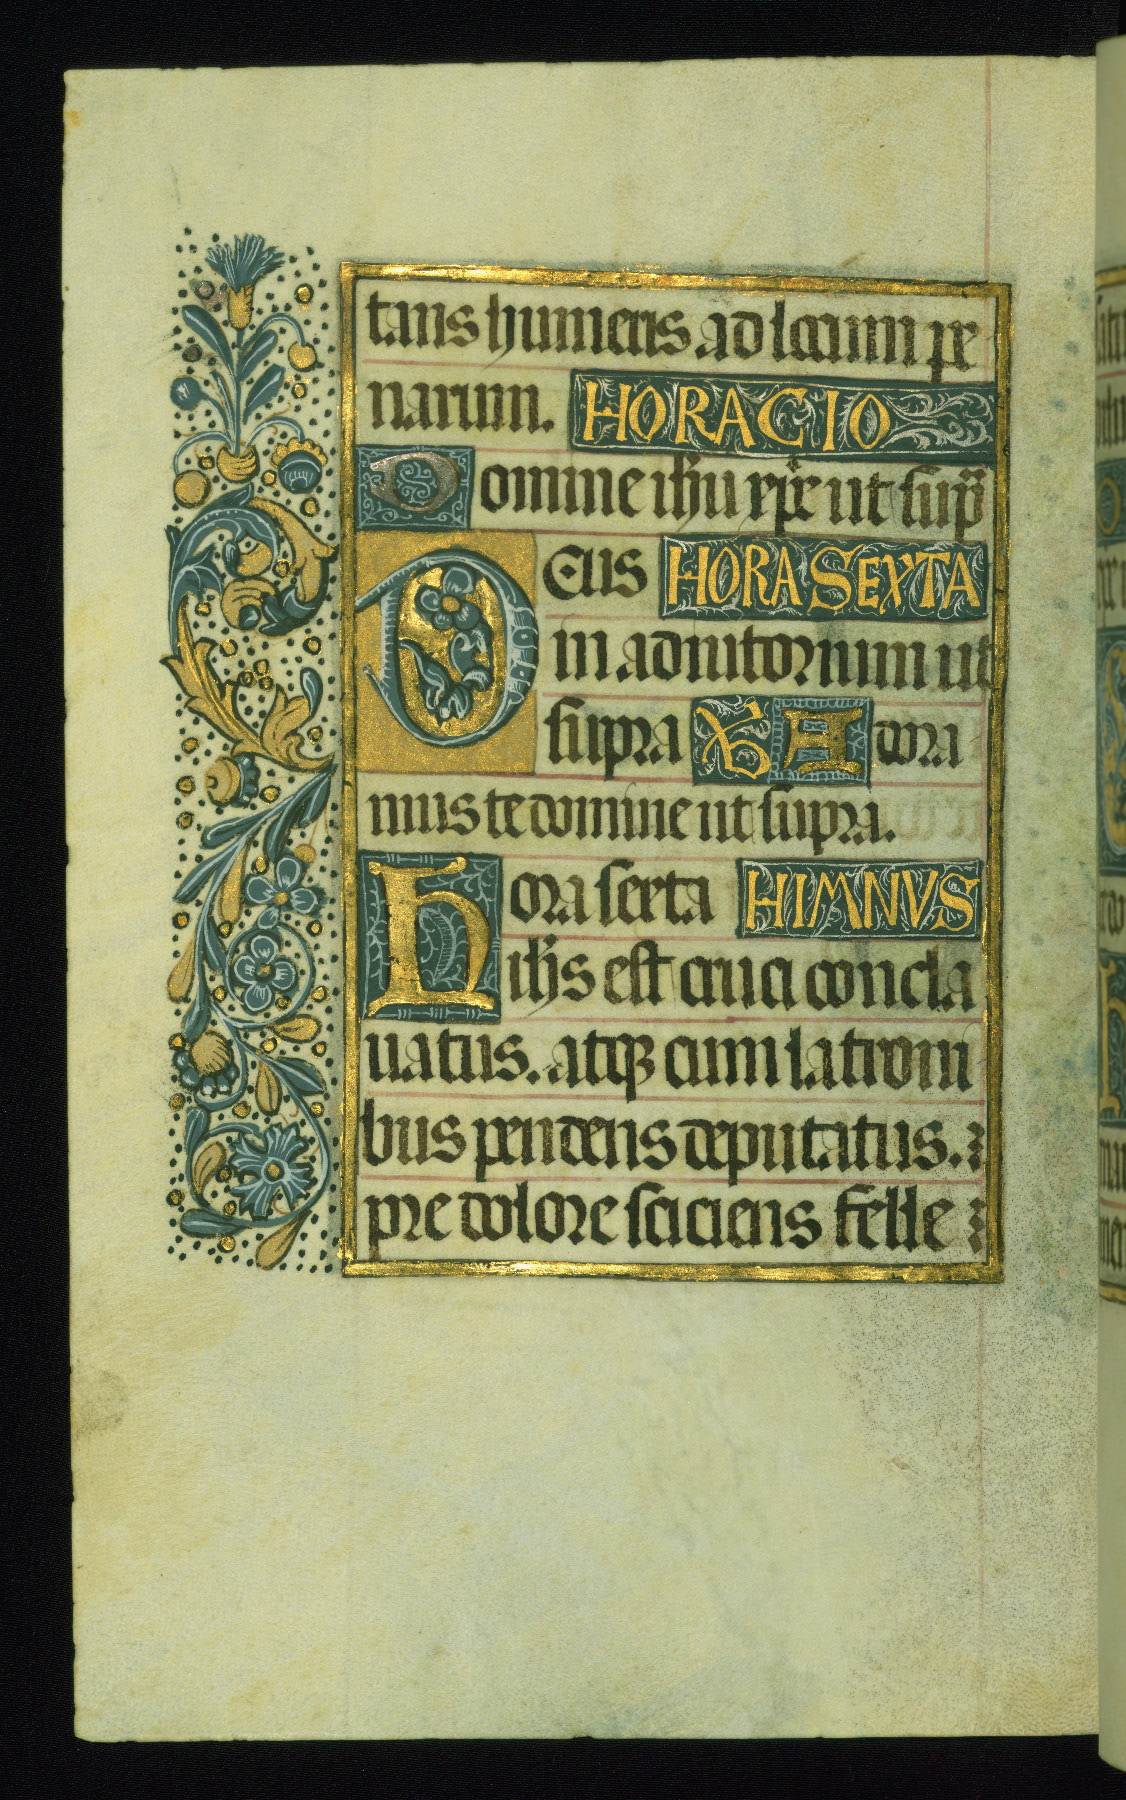 tans humeris ad locum pe
narum. HORACIO
Domine ihu xpe ut sup
Deus HORA SEXTA
in adiutorium ut
supra A dora
mus te domine ut supra.
Hora sexta HIMNVS
ihs est cruci concla
uatus. atq cum latroni
bus pendens deputatus.
pre dolore sciciens felle